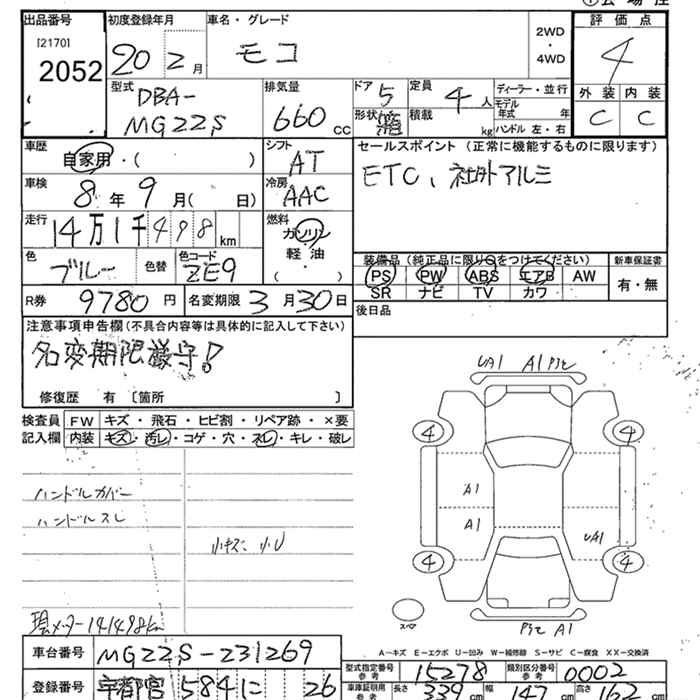 出品番号
[2170]
2052
初度登録年月
20 2月
車名・グレード
モコ
2WD
・
4WD
評価点
4
外装 内装
C C
型式
DBA-
MG22S
排気量
660 CC
ドア
5
形状
定員
4人
積載
kg
ディーラー・並行
モデル年式 年
ハンドル 左・右
車歴
自家用・( )
シフト
AT
セールスポイント (正常に機能するものに限ります)
ETC、社外アルミ
車検
8年9月( 日)
冷房
AAC
走行
14万1千498km
燃料
ガソリン
軽油
( )
色
ブルー
色替
色コード
ZE9
装備品 (純正品に限り○をつけてください)
PS PW ABS エアB AW
SR ナビ TV カワ
新車保証書
有・無
R券 9780円
名変期限 3月30日
後日品
注意事項申告欄(不具合内容等は具体的に記入して下さい)
名変期限厳守!
修復歴 有 〔箇所 〕
検査員
記入欄
FW キズ・飛石・ヒビ割・リペア跡・×要
内装 キズ・汚レ・コゲ・穴・スレ・キレ・破レ
ハンドルカバー
ハンドルスレ
小キズ、小U
現メーター141498km
UA1 A1
4 4
A1
A1
UA1
4 4
スペア
A1
A-キズ E-エクボ U-凹み W-補修跡 S-サビ C-腐食 XX-交換済
車台番号 MG22S-231269
登録番号 宇都宮 584 に 26
型式指定番号 参考 15278
類別区分番号 参考 0002
車庫証明用 参考
長さ 339cm 幅 147cm 高さ 162cm